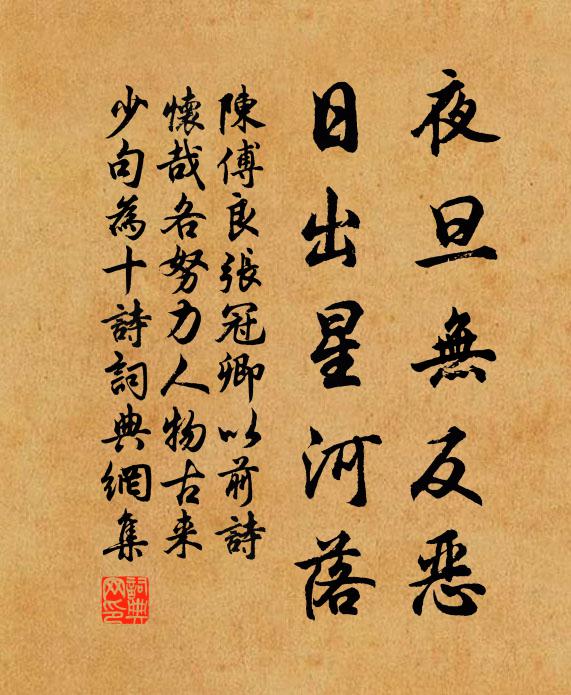 夜旦無反惡
日出星河落
陳傅良張冠卿以前詩
懷哉各努力人物古来
少句為十詩詞典網集
詞典
网印